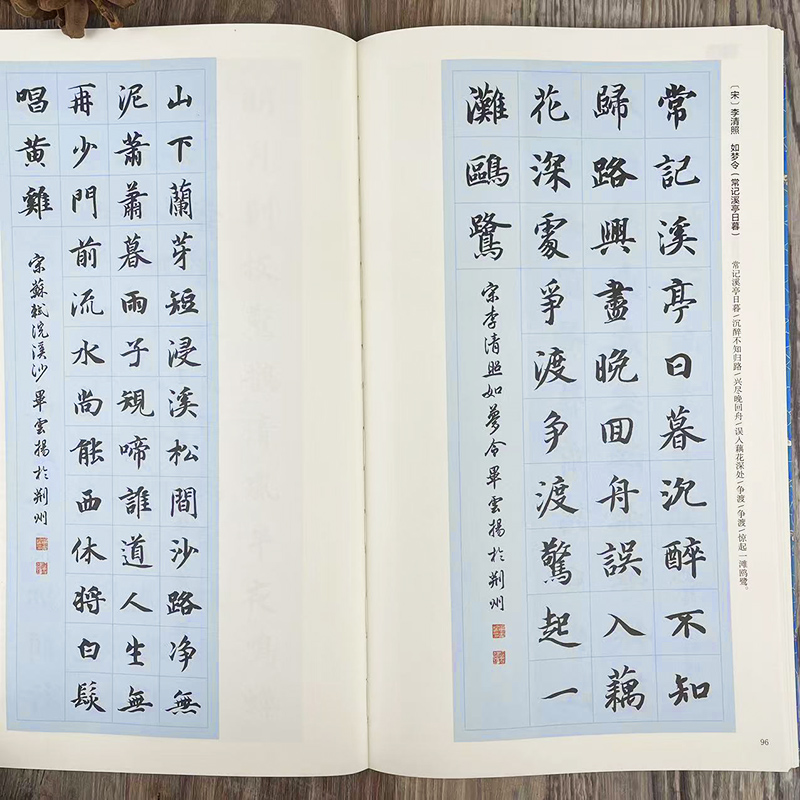 〔宋〕李清照 如梦令（常记溪亭日暮）
常记溪亭日暮/沉醉不知归路/兴尽晚回舟/误入藕花深处/争渡/争渡/惊起一滩鸥鹭。
常記溪亭日暮沉醉不知
歸路興盡晚回舟誤入藕
花深處爭渡争渡驚起一
灘鷗鷺
宋李清照如夢令畢雲揚於荊州
96
山下蘭芽短浸溪松間沙路净無
泥蕭蕭暮雨子規啼誰道人生無
再少門前流水尚能西休將白髮
唱黄雞
宋蘇軾浣溪沙畢雲揚於荊州